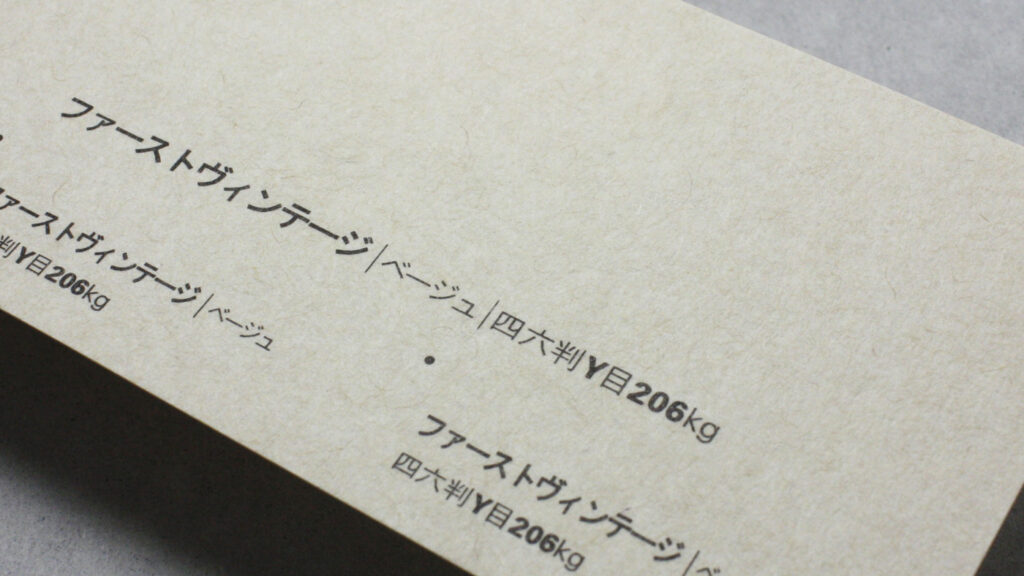 ファーストヴィンテージ|ベージュ|四六判Y目206kg
ァーストヴィンテージ|ベージュ
判Y目206kg
ファーストヴィンテージ|ベ
四六判Y目206kg